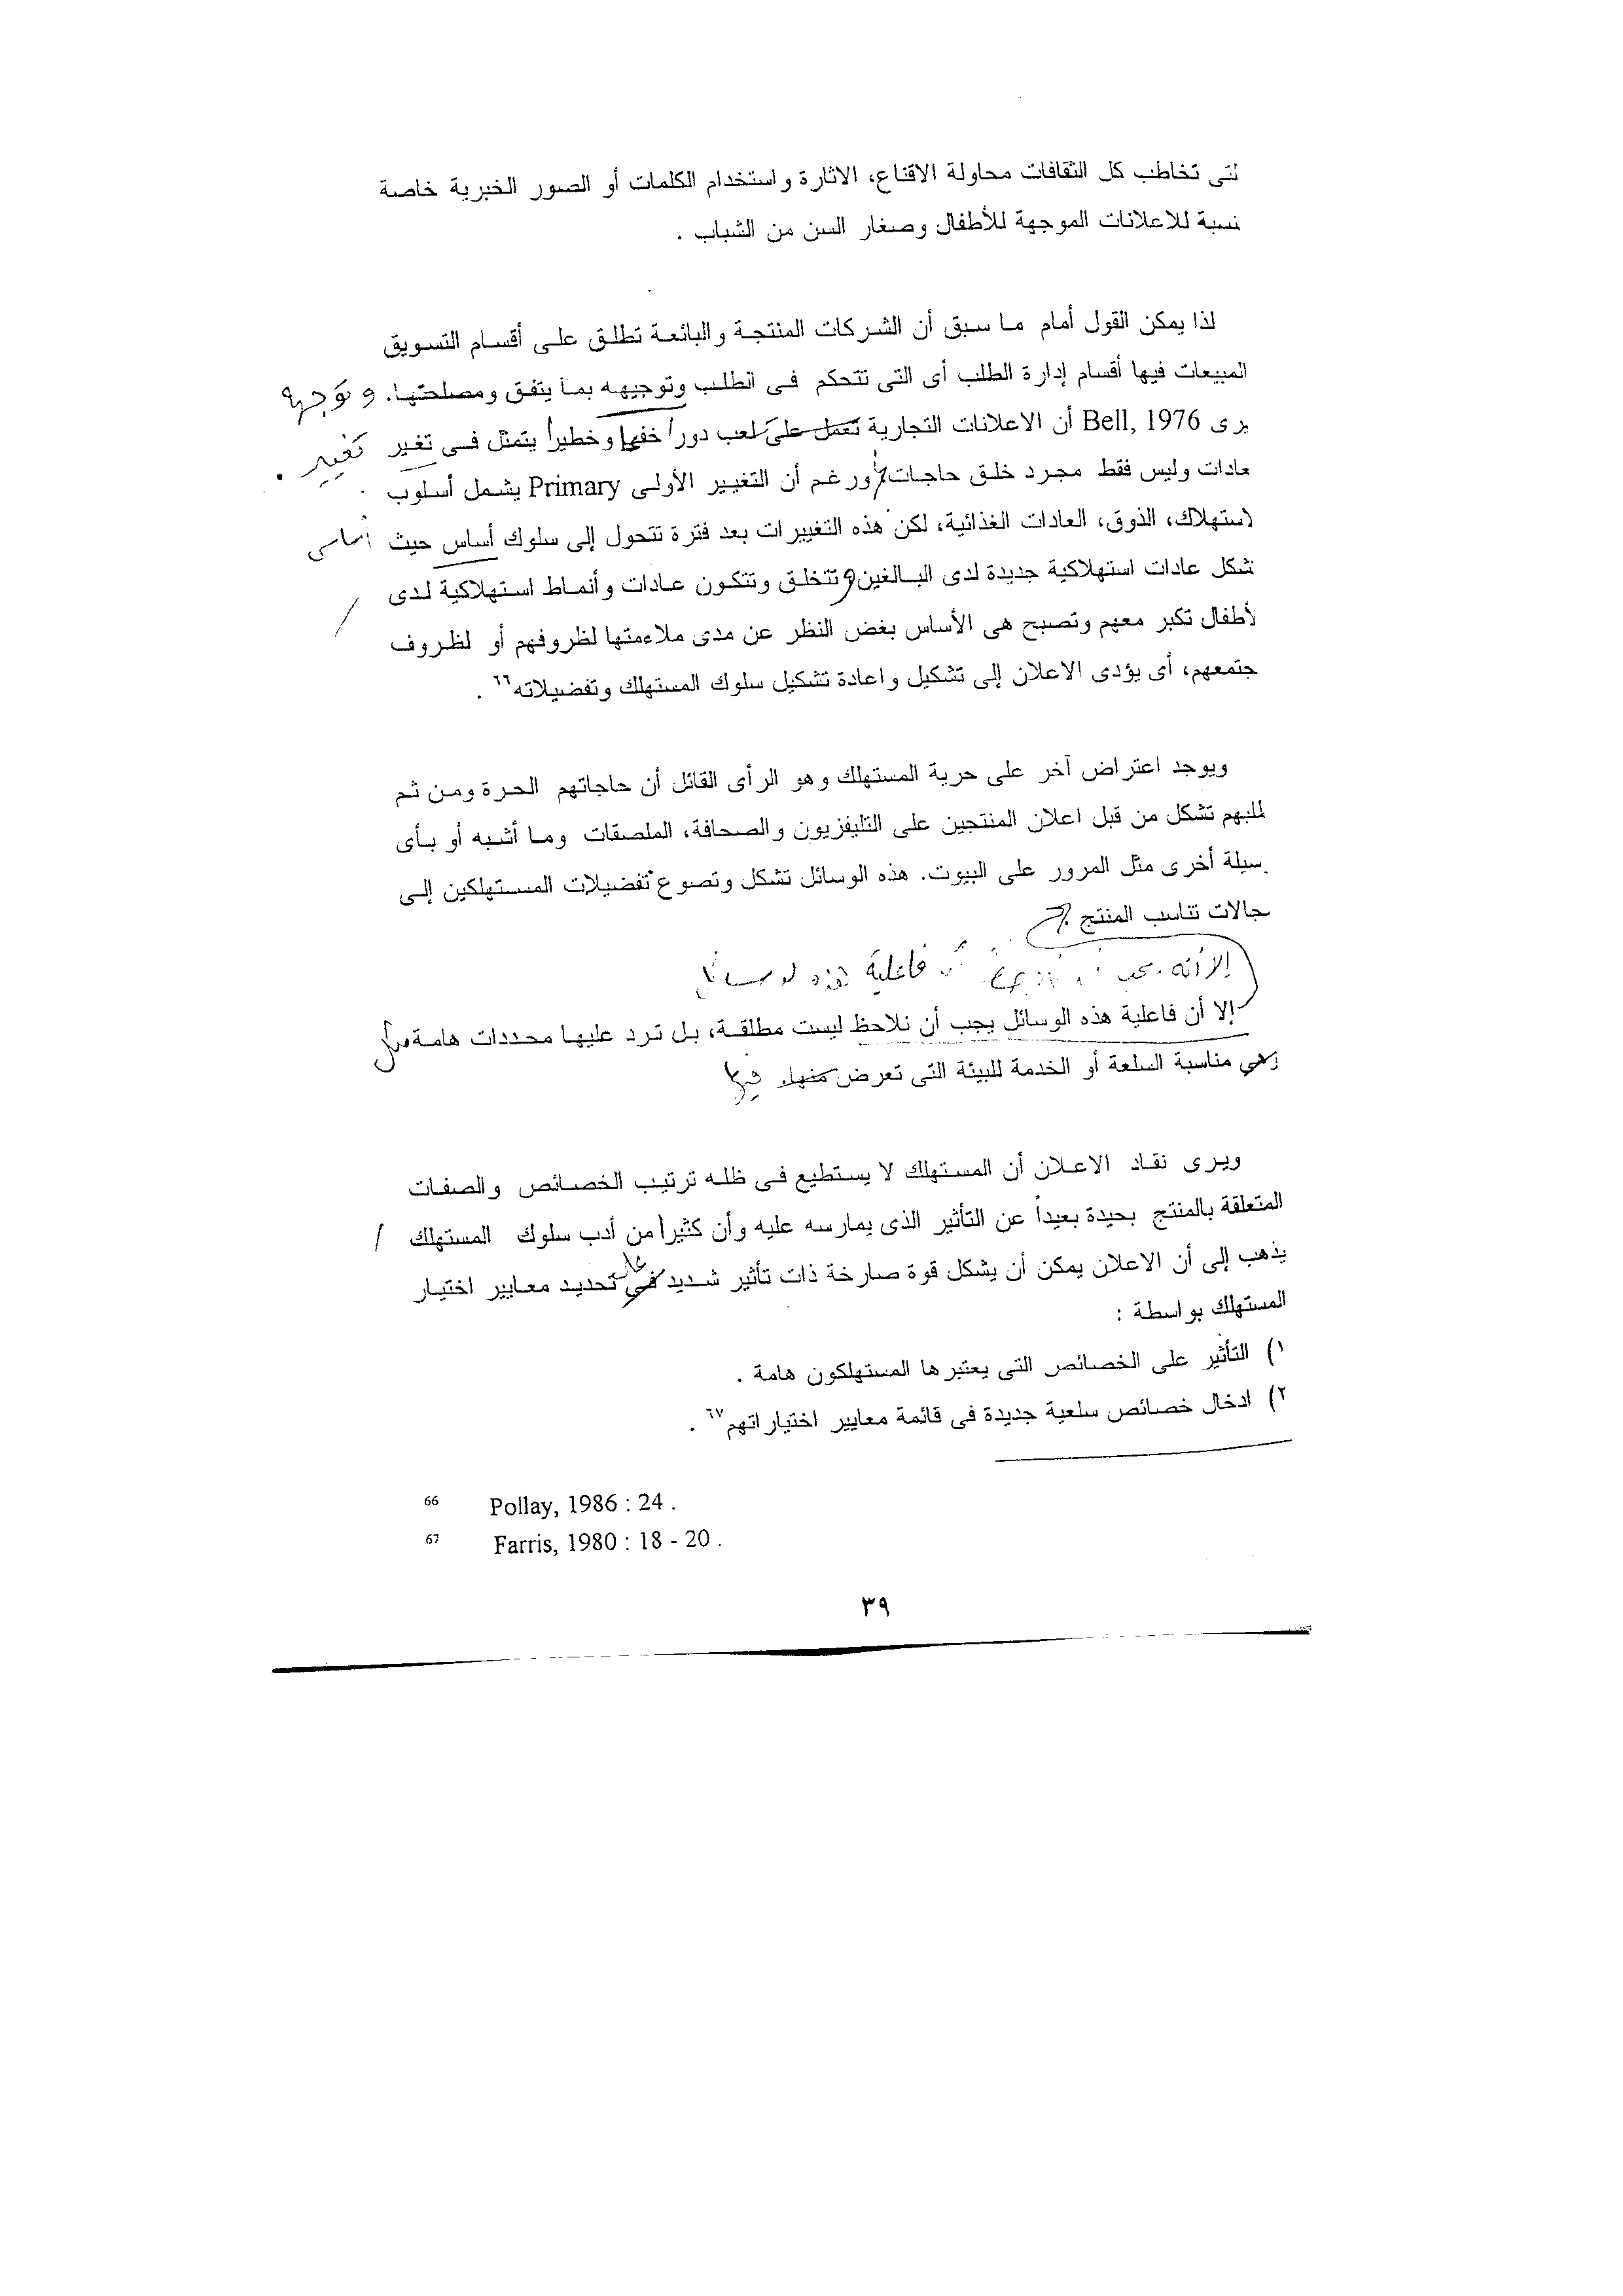 لتى تخاطب كل الثقافات محاولة الاقناع، الاثارة واستخدام الكلمات أو الصور الخبرية خاصة
نسبة للاعلانات الموجهة للأطفال وصغار السن من الشباب .
لذا يمكن القول أمام ما سبق أن الشركات المنتجة والبائعة تطلق على أقسام التسويق
المبيعات فيها أقسام إدارة الطلب أى التى تتحكم فى الطلب وتوجيهه بما يتفق ومصلحتها. وتوجهه
يرى Bell, 1976 أن الاعلانات التجارية تعمل على لعب دوراً خفياً وخطيراً يتمثل فى تغير تغيير
عادات وليس فقط مجرد خلق حاجات ورغم أن التغيير الأولى Primary يشمل أسلوب
لاستهلاك، الذوق، العادات الغذائية، لكن هذه التغييرات بعد فترة تتحول إلى سلوك أساس حيث أساسى
شكل عادات استهلاكية جديدة لدى البالغين وتتخلق وتتكون عادات وأنماط استهلاكية لدى
لأطفال تكبر معهم وتصبح هى الأساس بغض النظر عن مدى ملاءمتها لظروفهم أو لظروف
جتمعهم، أى يؤدى الاعلان إلى تشكيل واعادة تشكيل سلوك المستهلك وتفضيلاته٦٦ .
ويوجد اعتراض آخر على حرية المستهلك وهو الرأى القائل أن حاجاتهم الحرة ومن ثم
لبهم تشكل من قبل اعلان المنتجين على التليفزيون والصحافة، الملصقات وما أشبه أو بأى
سيلة أخرى مثل المرور على البيوت. هذه الوسائل تشكل وتصوع تفضيلات المستهلكين إلى
جالات تناسب المنتج .
إلا أنه يجب فاعلية هذه الوسائل
إلا أن فاعلية هذه الوسائل يجب أن نلاحظ ليست مطلقة، بل ترد عليها محددات هامة مثل
وهي مناسبة السلعة أو الخدمة للبيئة التى تعرض منها فيها
ويرى نقاد الاعلان أن المستهلك لا يستطيع فى ظله ترتيب الخصائص والصفات
المتعلقة بالمنتج بحيدة بعيداً عن التأثير الذى يمارسه عليه وأن كثيراً من أدب سلوك المستهلك
يذهب إلى أن الاعلان يمكن أن يشكل قوة صارخة ذات تأثير شديد فى على تحديد معايير اختيار
المستهلك بواسطة :
١) التأثير على الخصائص التى يعتبرها المستهلكون هامة .
٢) ادخال خصائص سلعية جديدة فى قائمة معايير اختياراتهم٦٧ .
66 Pollay, 1986 : 24 .
67 Farris, 1980 : 18 - 20 .
٣٩